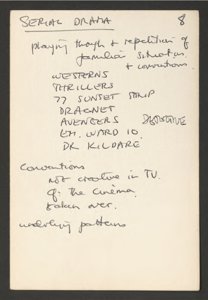 SERIAL DRAMA 8
playing through + repetition of
familiar situations
+ conventions.
WESTERNS
THRILLERS
77 SUNSET STRIP
DRAGNET
AVENGERS DETECTIVE
EM. WARD 10.
DR KILDARE
conventions
not creative in TV.
cf. the cinema
taken over.
underlying patterns